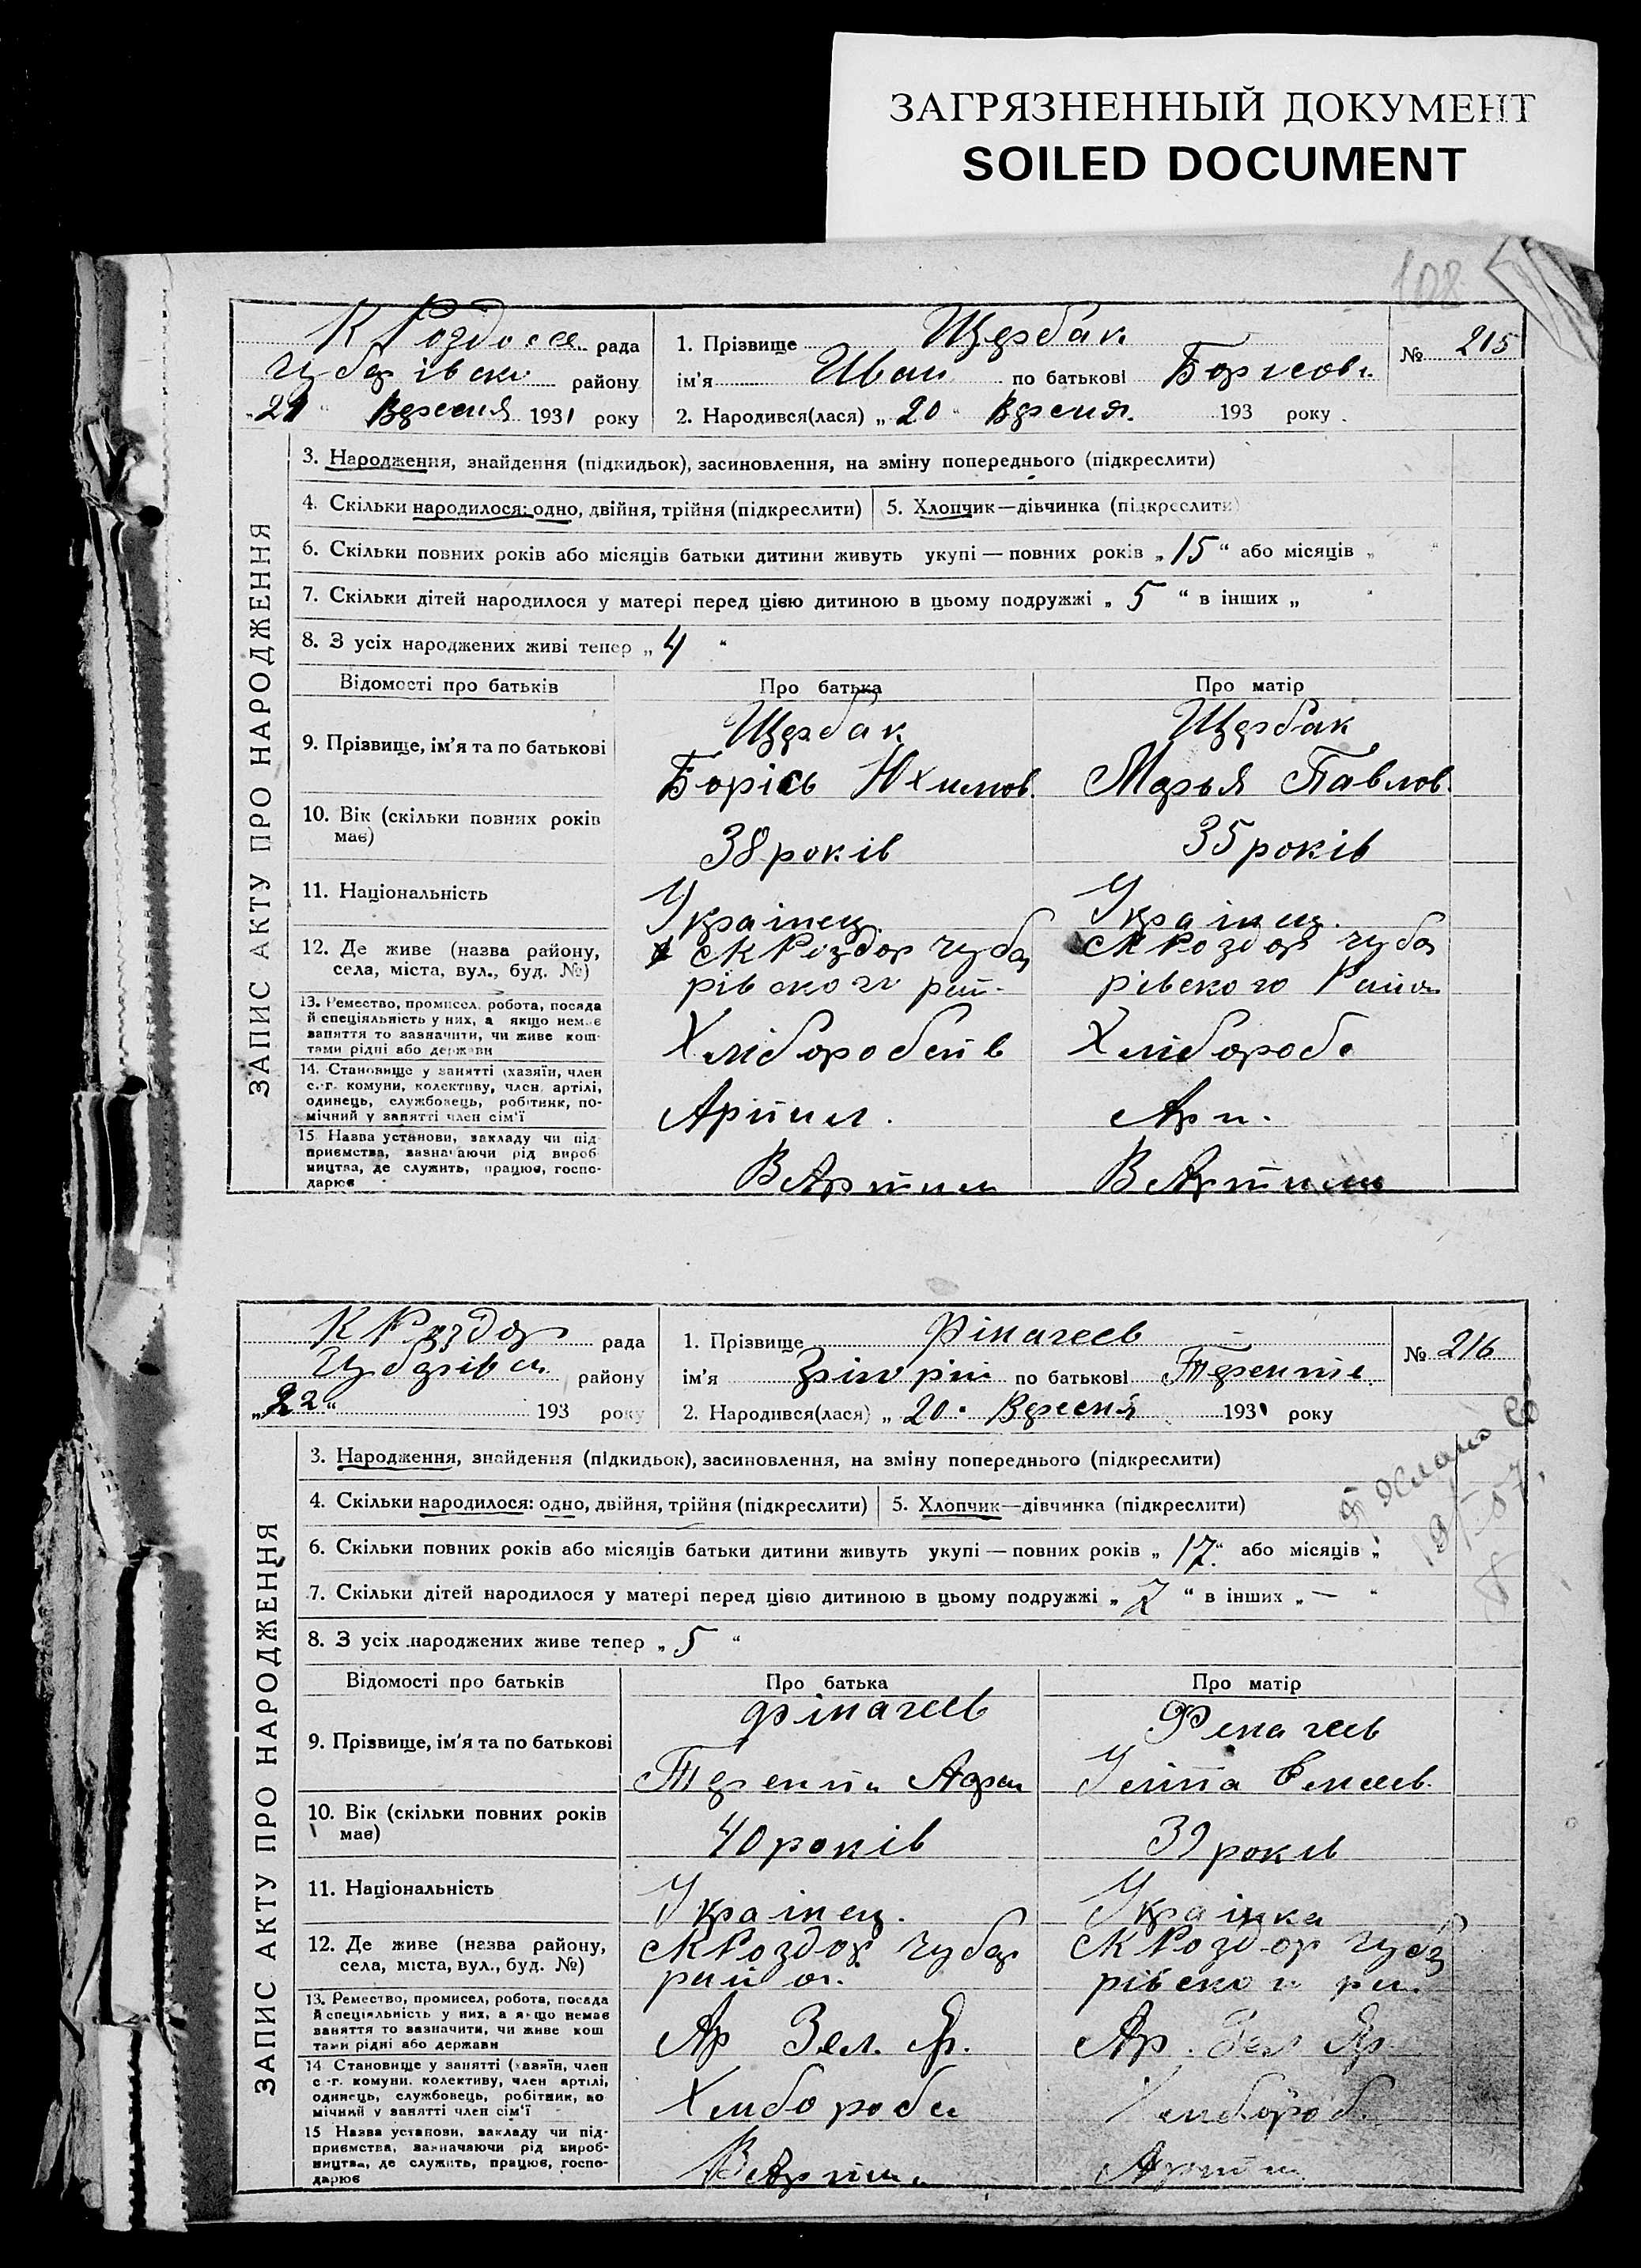 ЗАГРЯЗНЕННЫЙ ДОКУМЕНТ
SOILED DOCUMENT
108
ЗАПИС АКТУ ПРО НАРОДЖЕННЯ
К рада
району
"21" Вересня 1931 року
1. Прізвище Щербак
ім'я Иван по батькові Борисов.
2. Народився(лася) „20" Вересня. 193 року.
№ 215
3. Народження, знайдення (підкидьок), засиновлення, на зміну попереднього (підкреслити)
4. Скільки народилося: одно, двійня, трійня (підкреслити) 5. Хлопчик—дівчинка (підкреслити)
6. Скільки повних років або місяців батьки дитини живуть укупі — повних років „15" або місяців „ "
7. Скільки дітей народилося у матері перед цією дитиною в цьому подружжі „5" в інших „ "
8. З усіх народжених живі тепер „4"
Відомості про батьків Про батька Про матір
9. Прізвище, ім'я та по батькові
Щербак Щербак
Борісь Юхимов. Марья Павлов.
10. Вік (скільки повних років має)
38 років 35 років
11. Національність
Украінец. Украінец.
12. Де живе (назва району, села, міста, вул., буд. №)
с К Роздор чуба с К Роздор чуба
рівского рай. рівского Район
13. Ремество, промисел, робота, посада й спеціяльність у них, а якщо немає заняття то зазначити, чи живе коштами рідні або держави
Хлібороб
14. Становище у занятті (хазяїн, член с.-г. комуни, колективу, член артілі, одинець, службовець, робітник, помічний у занятті член сім'ї
Ар
15. Назва установи, закладу чи підприємства, зазначаючи рід виробництва, де служить, працює, господарює
В Артили В Артили
ЗАПИС АКТУ ПРО НАРОДЖЕННЯ
К Роздор рада
району
„22" 193 року
1. Прізвище Фіначеев
ім'я Грігорій по батькові Теренті
2. Народився(лася) „20" Вересня 1931 року
№ 216
3. Народження, знайдення (підкидьок), засиновлення, на зміну попереднього (підкреслити)
4. Скільки народилося: одно, двійня, трійня (підкреслити) 5. Хлопчик—дівчинка (підкреслити)
6. Скільки повних років або місяців батьки дитини живуть укупі — повних років „17" або місяців „
7. Скільки дітей народилося у матері перед цією дитиною в цьому подружжі „7" в інших „—"
8. З усіх народжених живе тепер „5"
Відомості про батьків Про батька Про матір
9. Прізвище, ім'я та по батькові
Фіначеев Финачеев
10. Вік (скільки повних років має)
40 років 39 років
11. Національність
Украінец. Украінка
12. Де живе (назва району, села, міста, вул., буд. №)
с К Роздор чубар с К Роздор чуба
район. рівско
13. Ремество, промисел, робота, посада й спеціяльність у них, а якщо немає заняття то зазначити, чи живе коштами рідні або держави
Ар Зел. Яр. Ар. Зел Яр
14. Становище у занятті (хазяїн, член с.-г. комуни, колективу, член артілі, одинець, службовець, робітник, помічний у занятті член сім'ї
Хлібороб Хлібороб
15. Назва установи, закладу чи підприємства, зазначаючи рід виробництва, де служить, працює, господарює
В Артили Артили